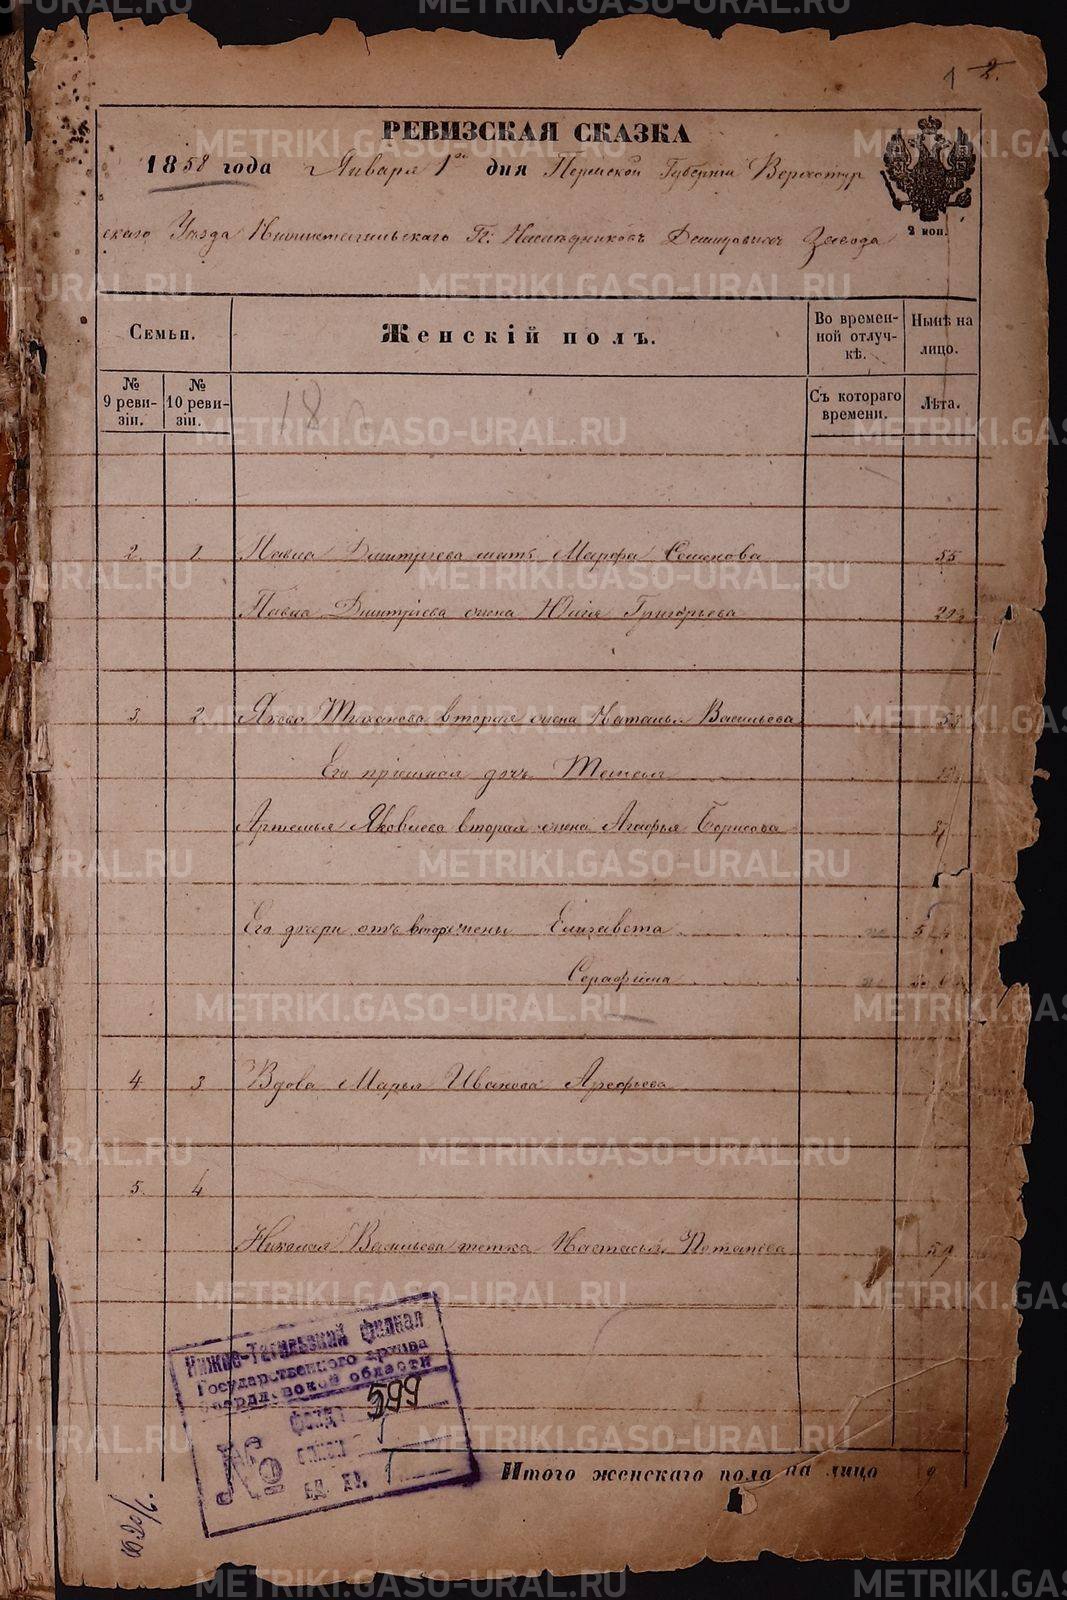 1 2.
РЕВИЗСКАЯ СКАЗКА
1858 года Января 1го дня Пермской Губерніи Верхотур
скаго Уѣзда Нижнетагильскаго Гг: Наслѣдниковъ Демидовыхъ Завода
2 коп.
Семьи.
Женскій полъ.
Во времен-
ной отлуч-
кѣ.
Нынѣ на
лицо.
№
9 реви-
зіи.
№
10 реви-
зіи.
Съ котораго
времени.
Лѣта.
18
2. 1. Павла Дмитріева мать Марфа Семенова 55
Павла Дмитріева жена Юлія Григорьева
3. 2. Якова вторая жена Наталья Васильева 53
Его пріемная дочь
Артемья Яковлева вторая жена Агафья Борисова
Его дочери отъ вторы жены Елизавета 5
Серафима
4 3 Вдова Марья Иванова Арефьева
5. 4
Николая Васильева тетка Настасья Потапова 59
Нижне-Тагильский филиал
Государственного архива
Свердловской области
Фонд 599
опись 1
ед. хр. 1
Итого женскаго пола на лицо 9
METRIKI.GASO-URAL.RU